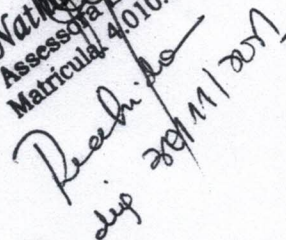 Assessora
Matrícula 4.010.
Recebido
dia 20/11/2017